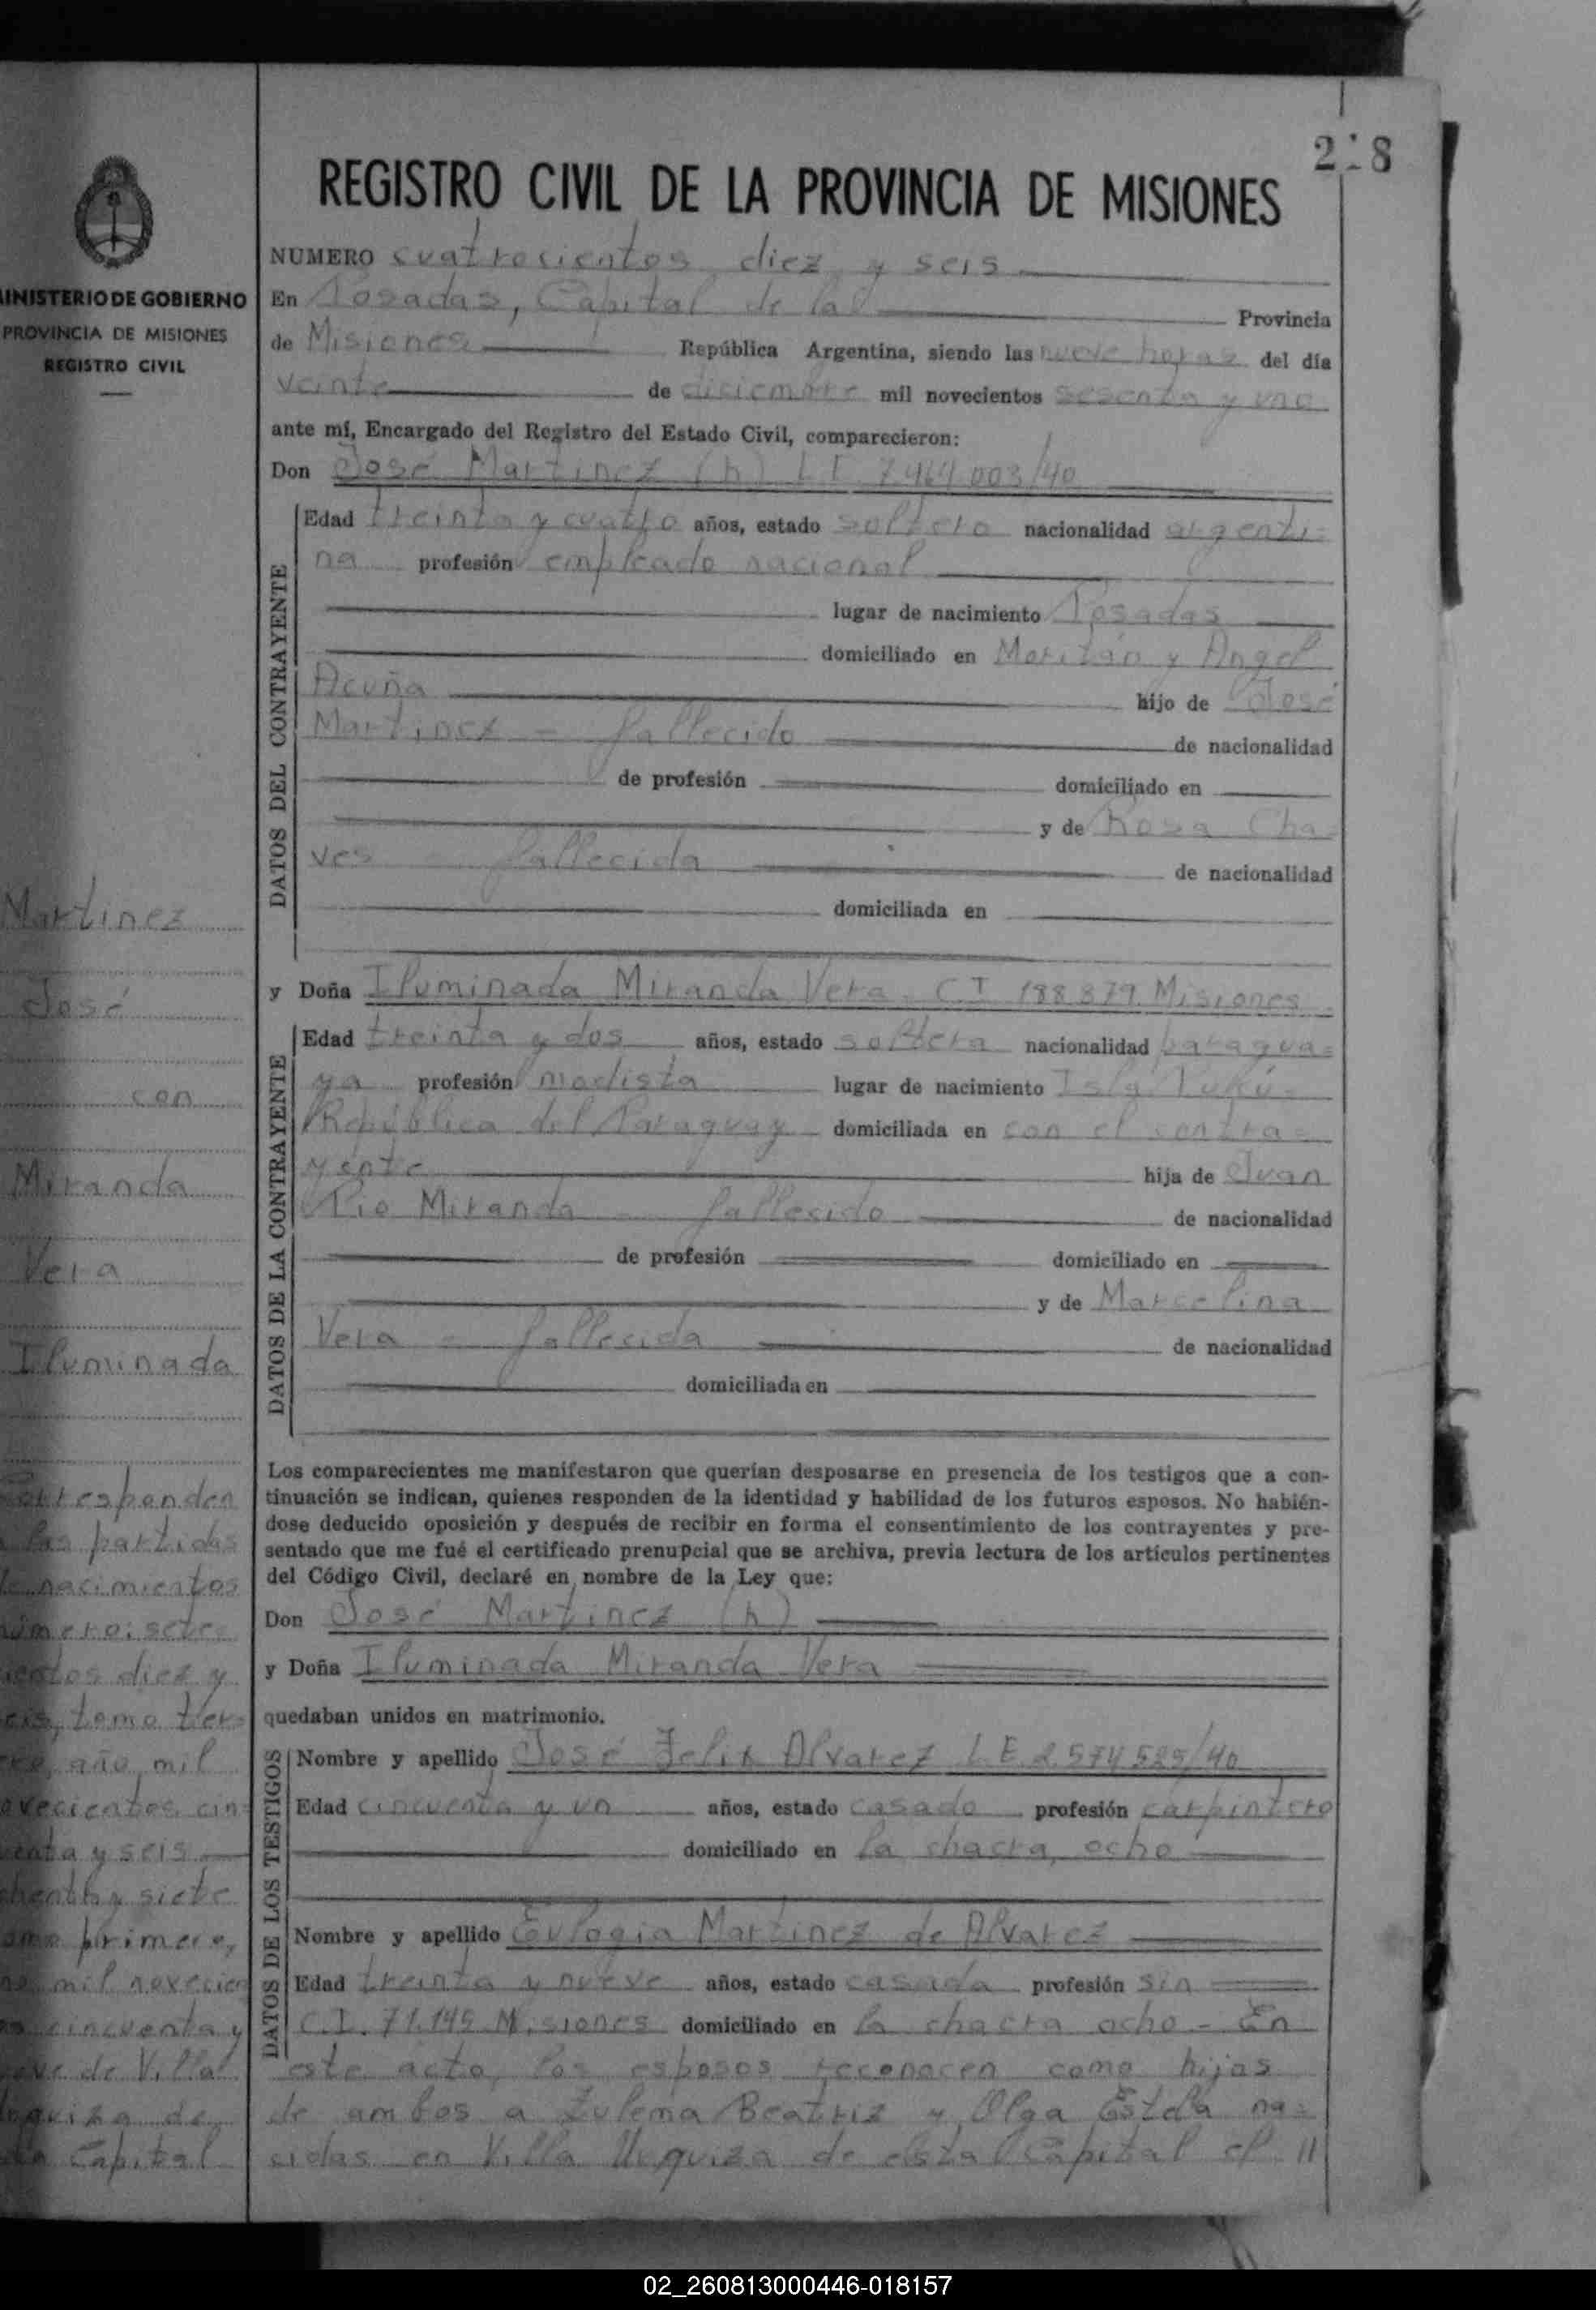 218
REGISTRO CIVIL DE LA PROVINCIA DE MISIONES
MINISTERIO DE GOBIERNO
PROVINCIA DE MISIONES
REGISTRO CIVIL
Martinez
José
con
Miranda
Vera
Iluminada
Corresponden
a las partidas
de nacimientos
número: sete
cientos diez y
seis, tomo ter=
cero, año mil
novecientos cin
cuenta y seis
ochenta y siete
tomo primero,
año mil novecien
tos cincuenta y
nueve de Villa
Urquiza de
la Capital
NUMERO cuatrocientos diez y seis
En Posadas, Capital de la Provincia
de Misiones República Argentina, siendo las nueve horas del día
veinte de diciembre mil novecientos sesenta y uno
ante mí, Encargado del Registro del Estado Civil, comparecieron:
Don José Martinez (h) L E 7.464.003/40
DATOS DEL CONTRAYENTE
Edad treinta y cuatro años, estado soltero nacionalidad argenti=
na profesión empleado nacional
lugar de nacimiento Posadas
domiciliado en Moritán y Angel
Acuña hijo de José
Martinez - fallecido de nacionalidad
de profesión domiciliado en
y de Rosa Cha=
ves - fallecida de nacionalidad
domiciliada en
y Doña Iluminada Miranda Vera - C I 188.379 Misiones
DATOS DE LA CONTRAYENTE
Edad treinta y dos años, estado soltera nacionalidad paragua=
ya profesión modista lugar de nacimiento Isla Pukú-
República del Paraguay domiciliada en con el contra=
yente hija de Juan
Pio Miranda - fallecido de nacionalidad
de profesión domiciliado en
y de Marcelina
Vera - fallecida de nacionalidad
domiciliada en
Los comparecientes me manifestaron que querían desposarse en presencia de los testigos que a con-
tinuación se indican, quienes responden de la identidad y habilidad de los futuros esposos. No habién-
dose deducido oposición y después de recibir en forma el consentimiento de los contrayentes y pre-
sentado que me fué el certificado prenupcial que se archiva, previa lectura de los artículos pertinentes
del Código Civil, declaré en nombre de la Ley que:
Don José Martinez (h)
y Doña Iluminada Miranda Vera
quedaban unidos en matrimonio.
DATOS DE LOS TESTIGOS
Nombre y apellido José Felix Alvarez L.E. 2.574.525/40
Edad cincuenta y un años, estado casado profesión carpintero
domiciliado en la chacra ocho
Nombre y apellido Eulogia Martinez de Alvarez
Edad treinta y nueve años, estado casada profesión sin
C.I. 71.145 Misiones domiciliado en la chacra ocho - En
este acto, los esposos reconocen como hijas
de ambos a Zulema Beatriz y Olga Estela na=
cidas en Villa Urquiza de esta Capital el 11
02_260813000446-018157